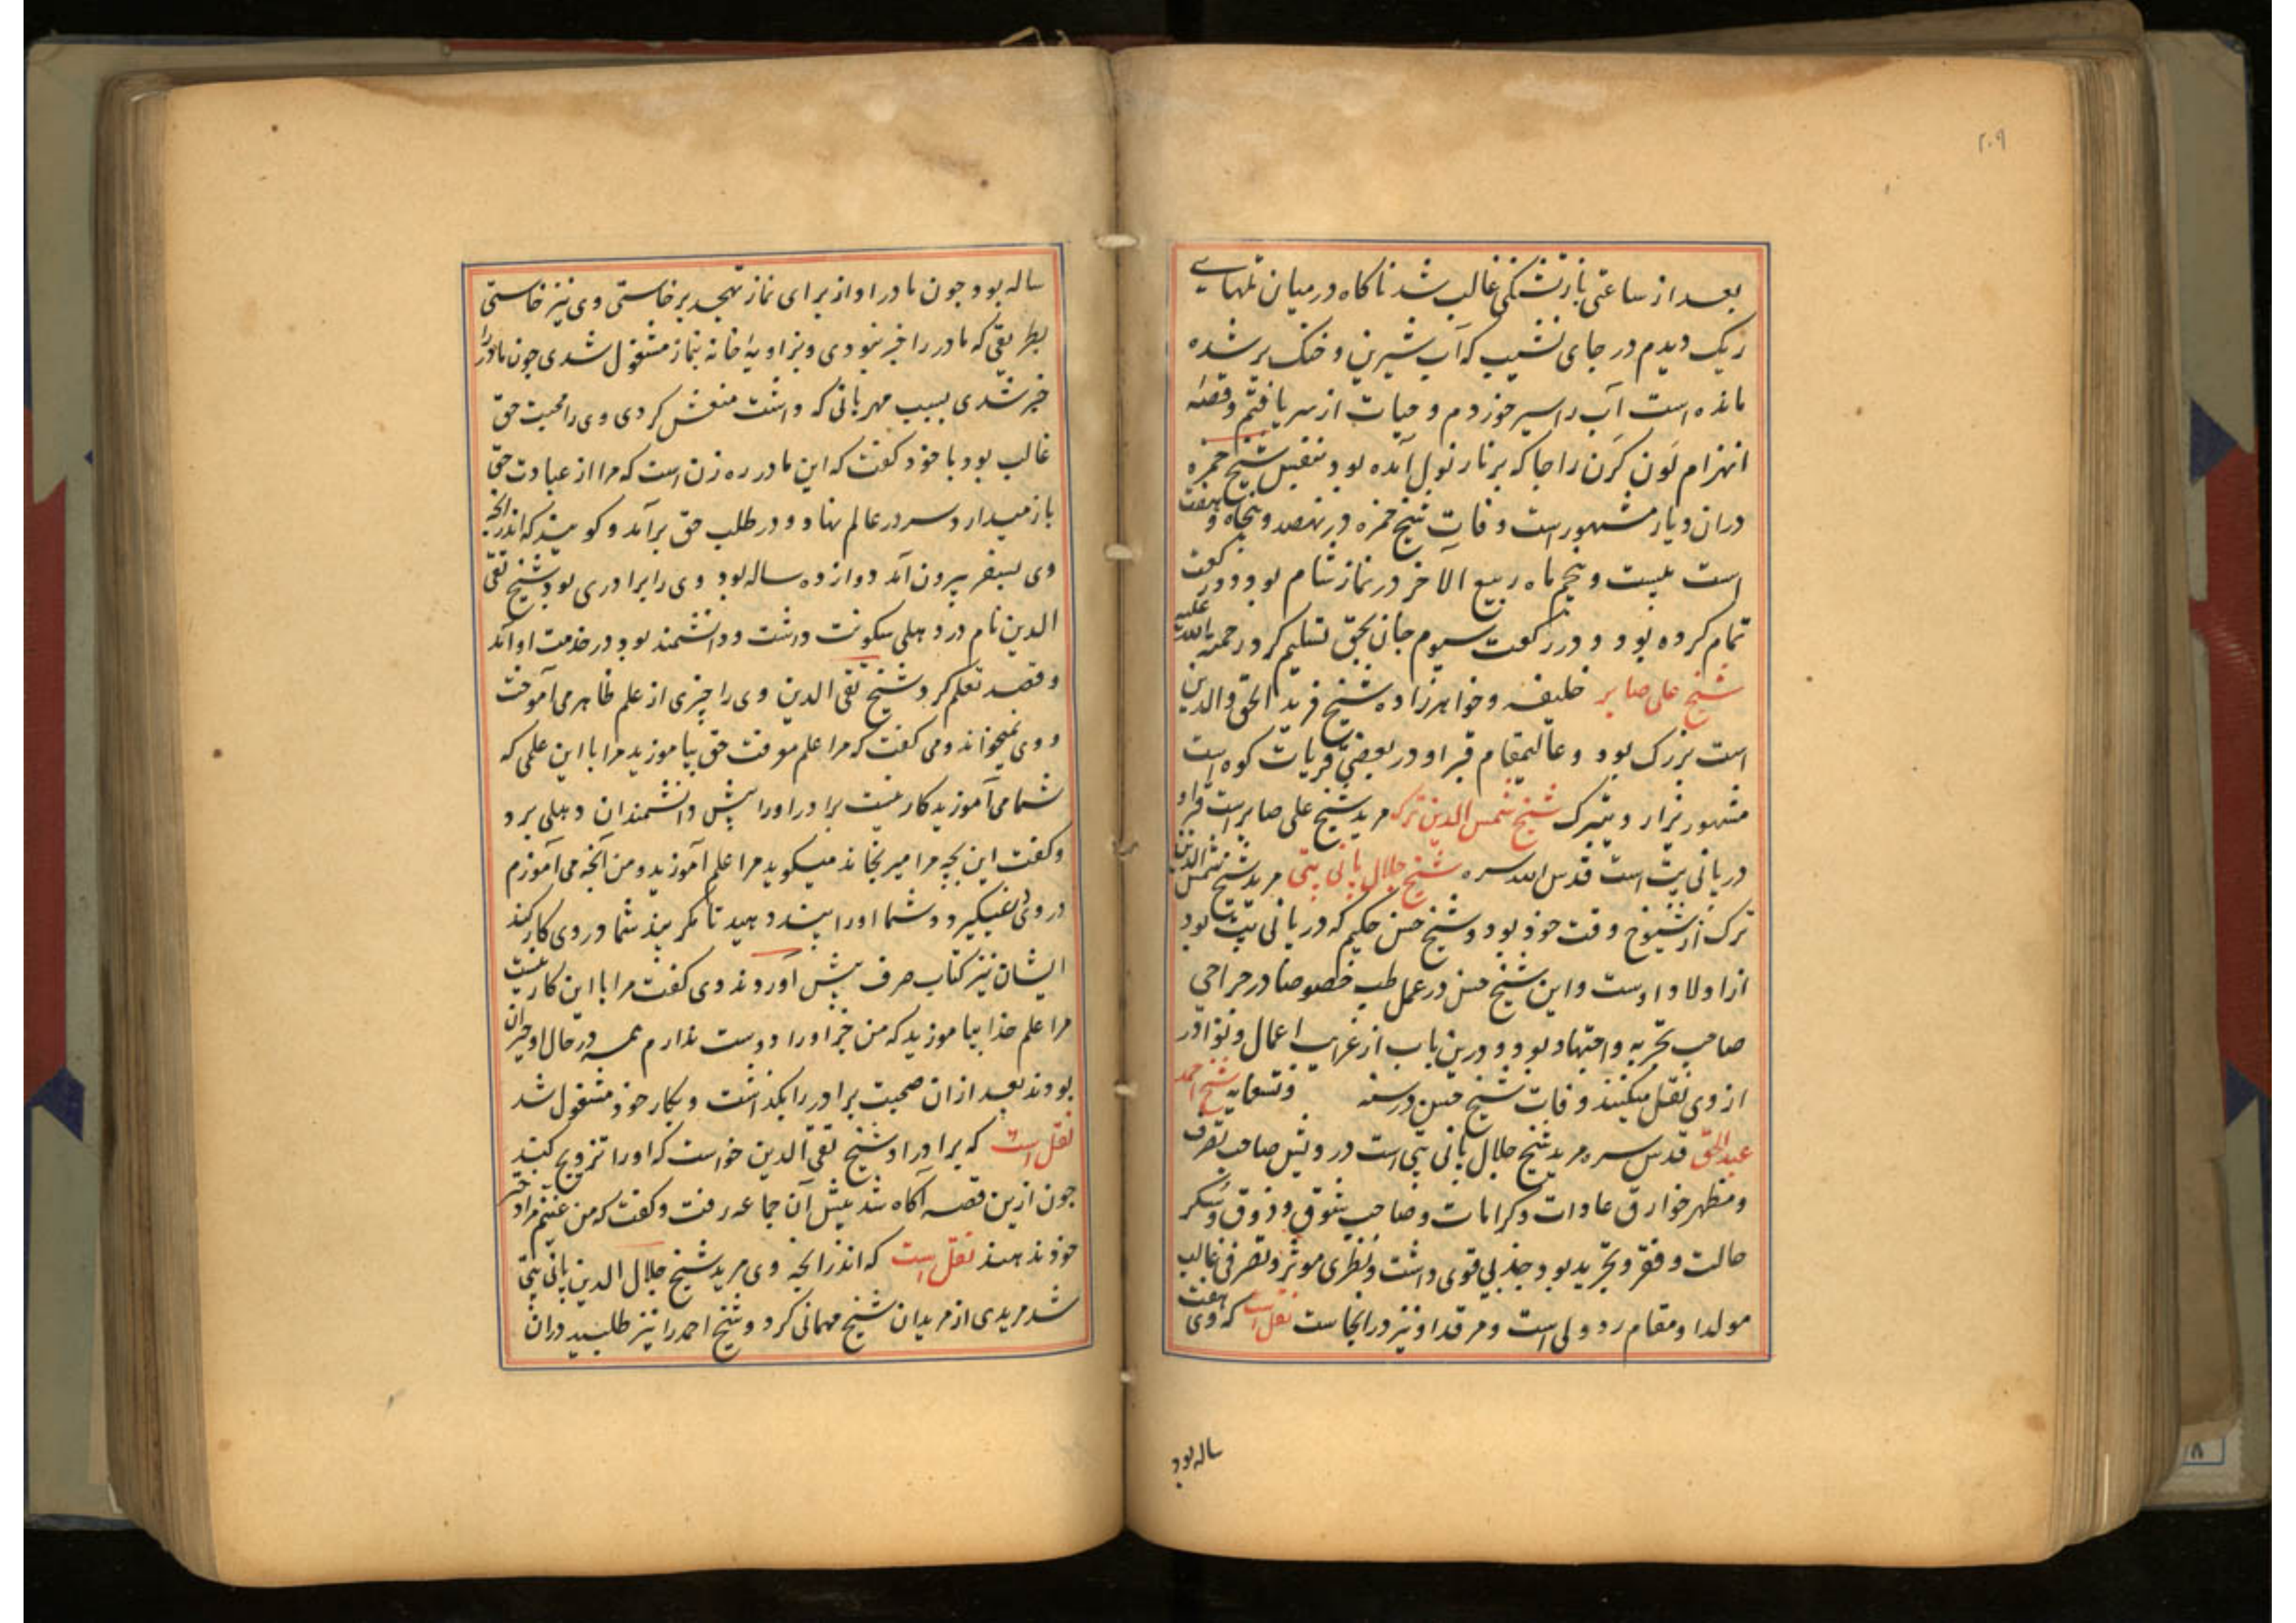 ۲۰۹
بعد از ساعتی باز تشنگی غالب شد ناکاه در میان تلهاے
ریک دیدم در جای نشیب که آب شیرین و خنک پر شده
مانده است آب را سیر خوردم و حیات از سر یافتم و قصهٔ
انهزام لون کرن راجا که بر نارنول آمده بود بتفیل شیخ حمزه
دران دیار مشهور است وفات شیخ حمزه در نهصد و پنجاه و هفت
است بیست و پنجم ماه ربیع الآخر در نماز شام بود دو رکعت
تمام کرده بود و در رکعت سیوم جان بحق تسلیم کرد رحمة الله علیه
شیخ علی صابر خلیفه و خواهرزاده شیخ فرید الحق والدین
است بزرک بود و عالیمقام قبر او در بعضی قریات کوه است
مشهور یزار و یتبرک شیخ شمس الدین ترک مرید شیخ علی صابر است قبر او
در پانی پت است قدس الله سره شیخ جلال پانی پتی مرید شیخ شمس الدین
ترک از شیوخ وقت خود بود و شیخ حسن حکیم که در پانی پت بود
از اولاد اوست و این شیخ حسن در عمل طب خصوصا در جراحی
صاحب تجربه و اجتهاد بود و درین باب از غرایب اعمال و نوادر
از وی نقل میکنند وفات شیخ حسن در سنه وتسعمایه شیخ احمد
عبد الحق قدس سره مرید شیخ جلال پانی پتی است درویش صاحب تصرف
و مظهر خوارق عادات و کرامات و صاحب شوق و ذوق و سکر
حالت و فقر و تجرید بود جذبی قوی داشت و نظری موثر و تصرفی غالب
مولد او مقام ردولی است و مرقد او نیز در انجاست نقل است که وی هفت
ساله بود
ساله بود جون مادر او از برای نماز تهجد برخاستی وی نیز خاستی
بطریقی که مادر را خبر نبودی و بزاویهٔ خانه بنماز مشغول شدی جون مادر را
خبر شدی بسبب مهربانی که داشت منعش کردی وی را محبت حق
غالب بود با خود کفت که این مادر ره زن است که مرا از عبادت حق
باز میدارد سر در عالم نهاد و در طلب حق برآمد و کویند که اندرانچه
وی بسفر بیرون آمد دوازده ساله بود وی را برادری بود شیخ تقی
الدین نام در دهلی سکونت داشت و دانشمند بود در خدمت او آمد
و قصد تعلم کرد شیخ تقی الدین وی را چیزی از علم ظاهر می آموخت
و وی نمیخواند و می کفت که مرا علم معرفت حق بیاموزید مرا با این علمی که
شما می آموزید کار نیست برادر او را پیش دانشمندان دهلی برد
و کفت این بچه مرا میرنجاند میکوید مرا علم آموزید و من انچه می آموزم
در وی نمیکیرد و شما او را پند دهید تا مکر پند شما در وی کار کند
ایشان نیز کتاب صرف پیش آوردند وی کفت مرا با این کار نیست
مرا علم خدا بیاموزید که من جز او را دوست ندارم همه در حال او حیران
بودند بعد ازان صحبت برادر را بکذاشت و بکار خود مشغول شد
نقل است که برادر او شیخ تقی الدین خواست که او را تزویج کنند
جون ازین قصه آکاه شد پیش آن جماعه رفت و کفت که من عنینم مرا دختر
خود ندهند نقل است که اندرانچه وی مرید شیخ جلال الدین پانی پتی
شد مریدی از مریدان شیخ مهمانی کرد و شیخ احمد را نیز طلبید دران